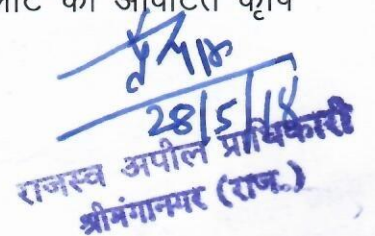 को आवंटित कृषि
28/5/18
राजस्व अपील प्राधिकारी
श्रीगंगानगर (राज.)